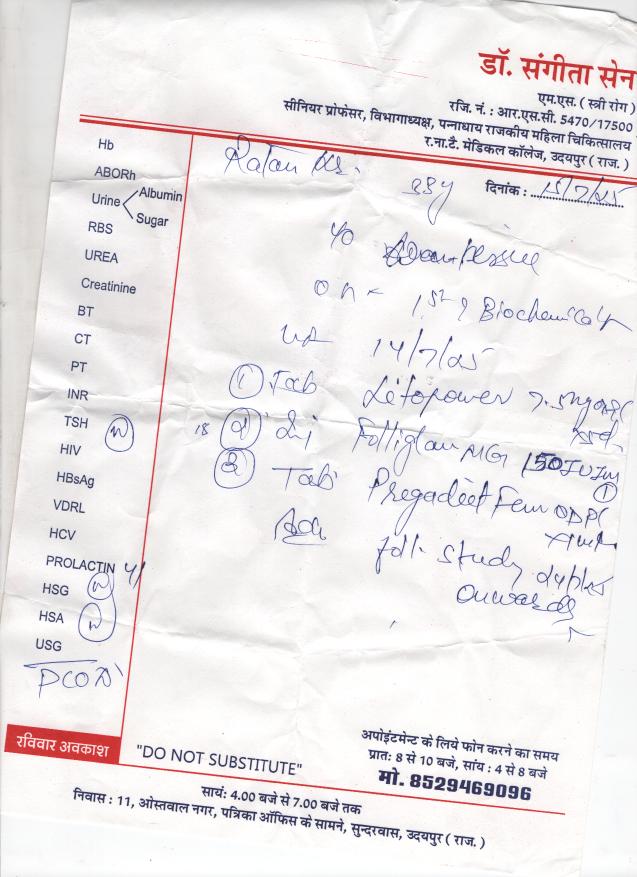 डॉ. संगीता सेन
एम.एस. ( स्त्री रोग )
रजि. नं. : आर.एस.सी. 5470/17500
सीनियर प्रोफेसर, विभागाध्यक्ष, पन्नाधाय राजकीय महिला चिकित्सालय
र.ना.टै. मेडिकल कॉलेज, उदयपुर ( राज. )
Ratan
33y
दिनांक : 15/7/25
Hb
ABORh
Urine
Albumin
Sugar
RBS
UREA
Creatinine
BT
CT
PT
INR
TSH (N)
HIV
HBsAg
VDRL
HCV
PROLACTIN
HSG (N)
HSA (N)
USG
PCOD
1st
Biochemical
14/7/25
① Tab Letopower
② Inj MG 150 IU IM
③ Tab
foll. study
onwards
रविवार अवकाश
"DO NOT SUBSTITUTE"
अपोइंटमेन्ट के लिये फोन करने का समय
प्रात: 8 से 10 बजे, सांय : 4 से 8 बजे
मो. 8529469096
सायं: 4.00 बजे से 7.00 बजे तक
निवास : 11, ओस्तवाल नगर, पत्रिका ऑफिस के सामने, सुन्दरवास, उदयपुर ( राज. )